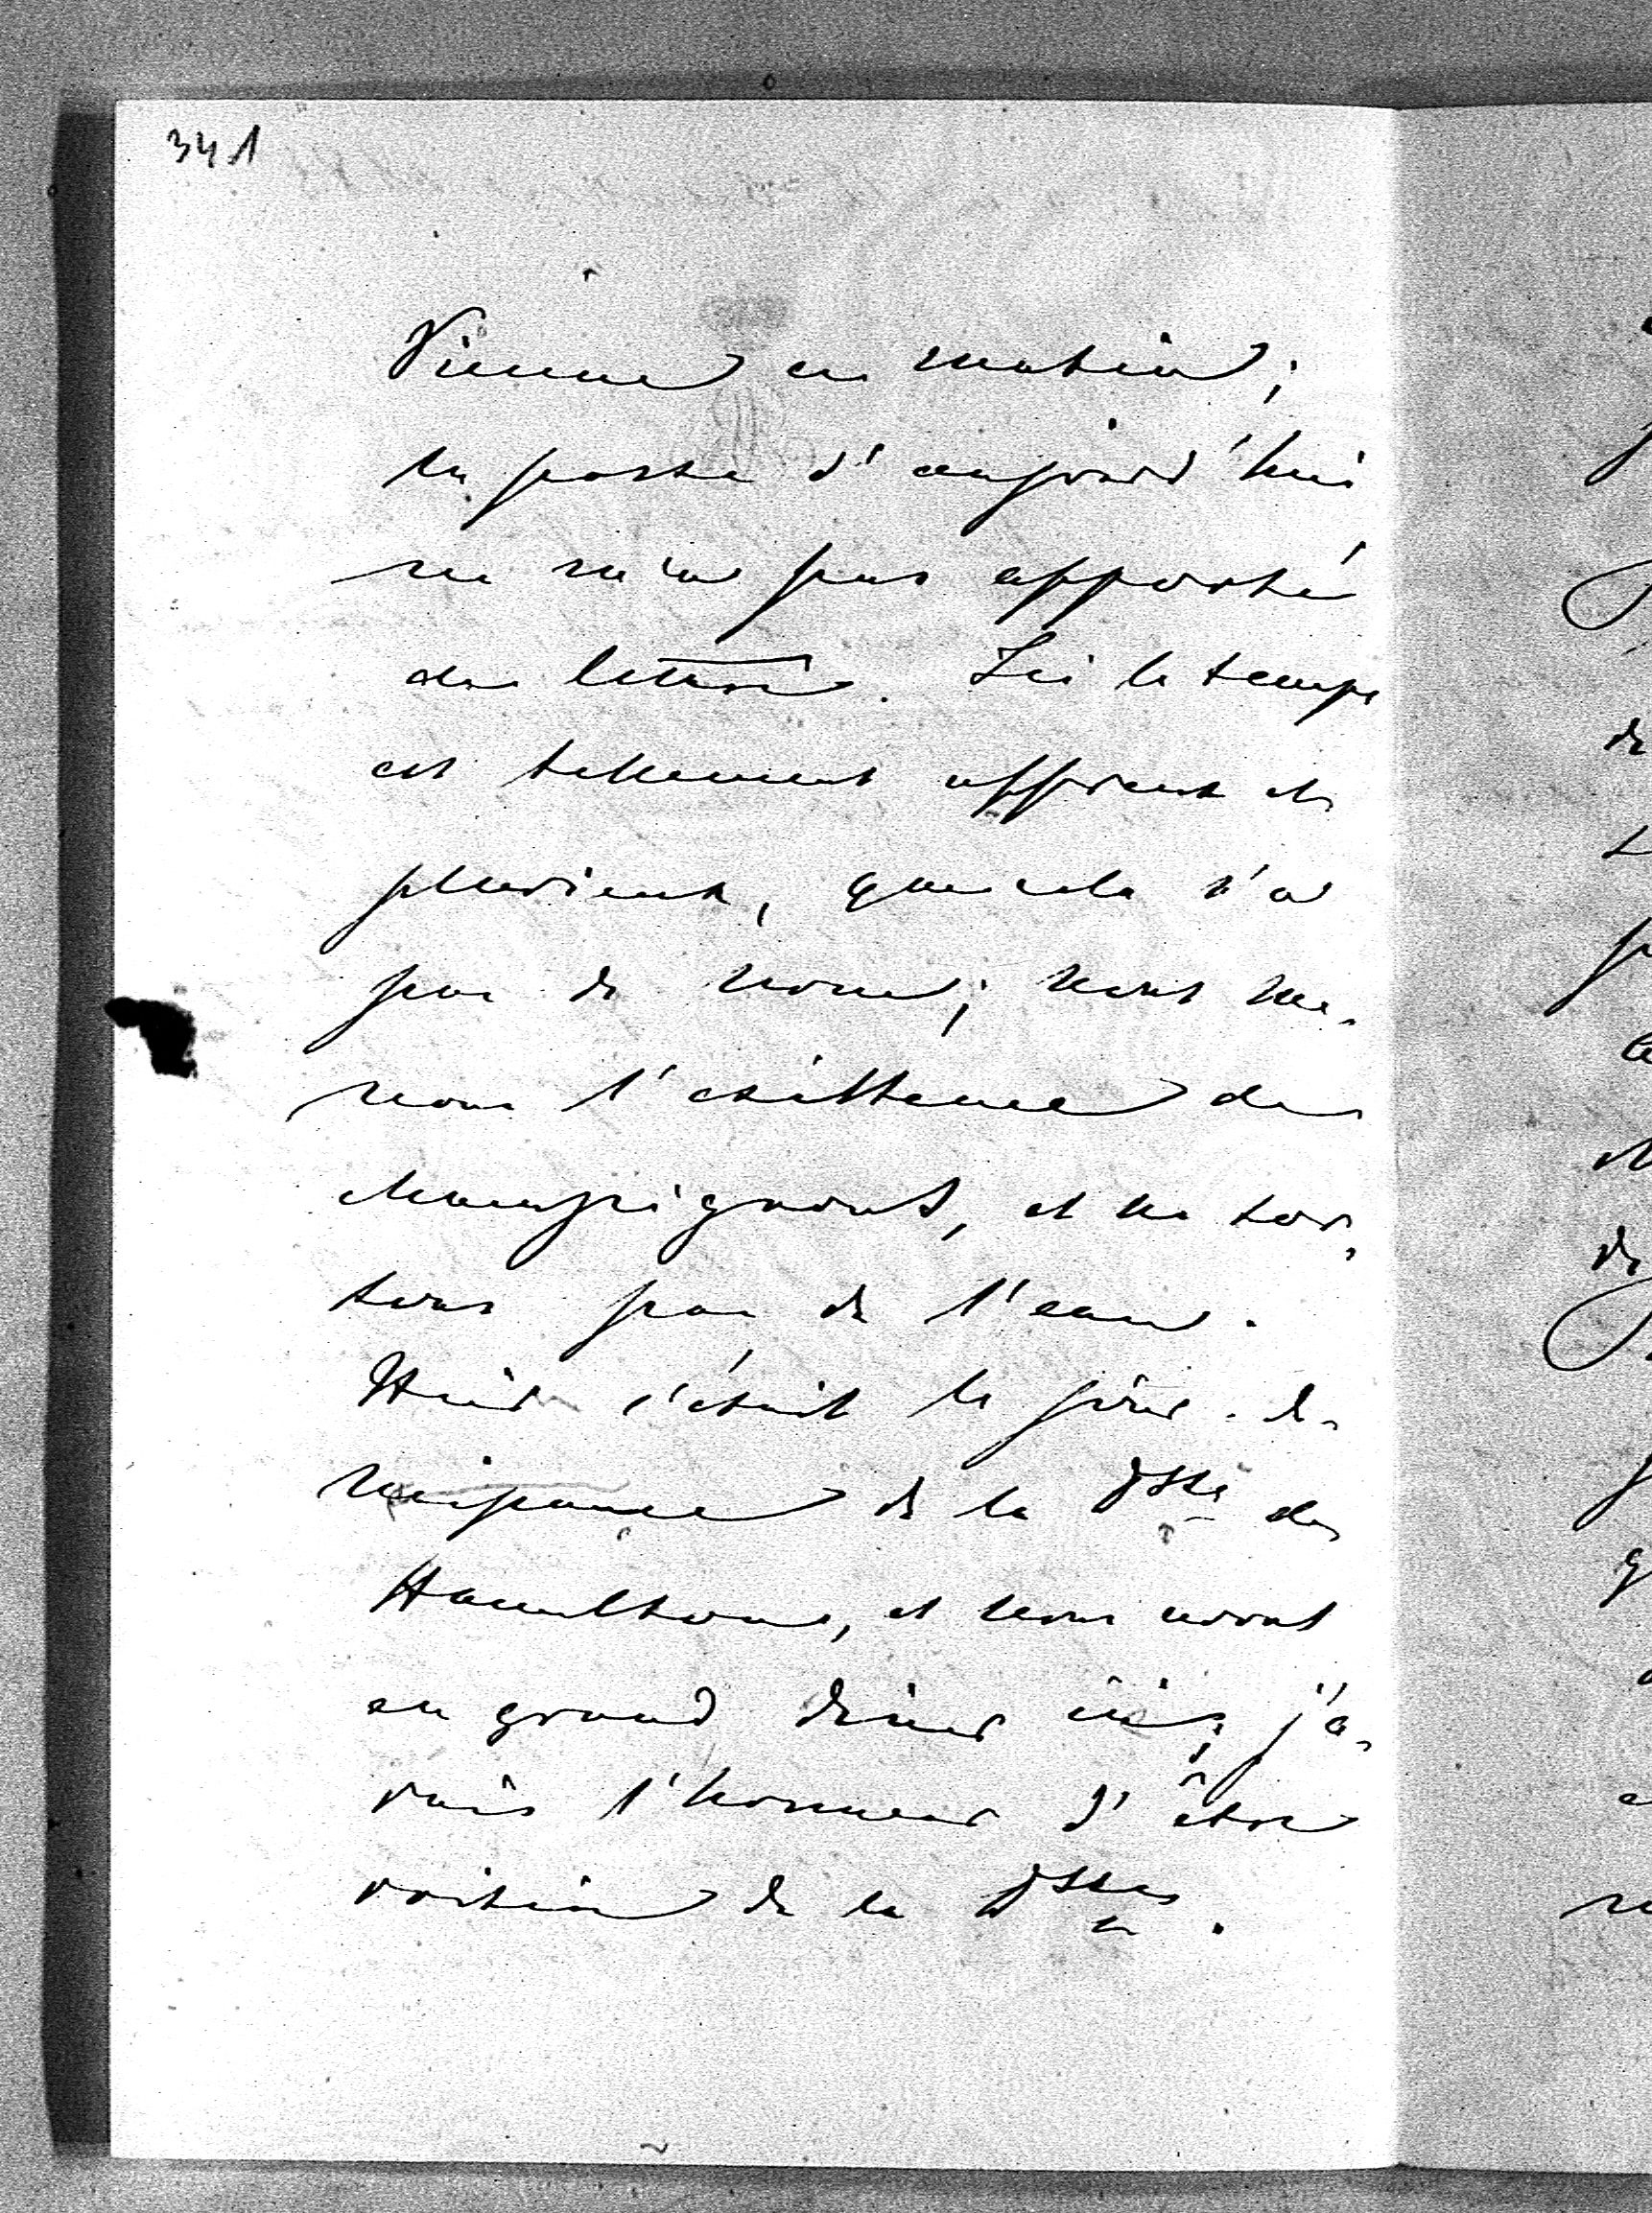 341
Vienne ce matin;
la poste d'aujourd'hui
ne m'a pas apporté
de lettre. Ici le temps
est tellement affreux et
pluvieux, que cela n'a
pas de nom; nous me-
nons l'existence de
champignons, et ne sor-
tons pas de l'eau.
Hier c'était le jour de
naissance de la Dsse de
Hamilton, et nous avons
eu grand diner ici, j'a-
vais l'honneur d'être
voisin de la Dsse.